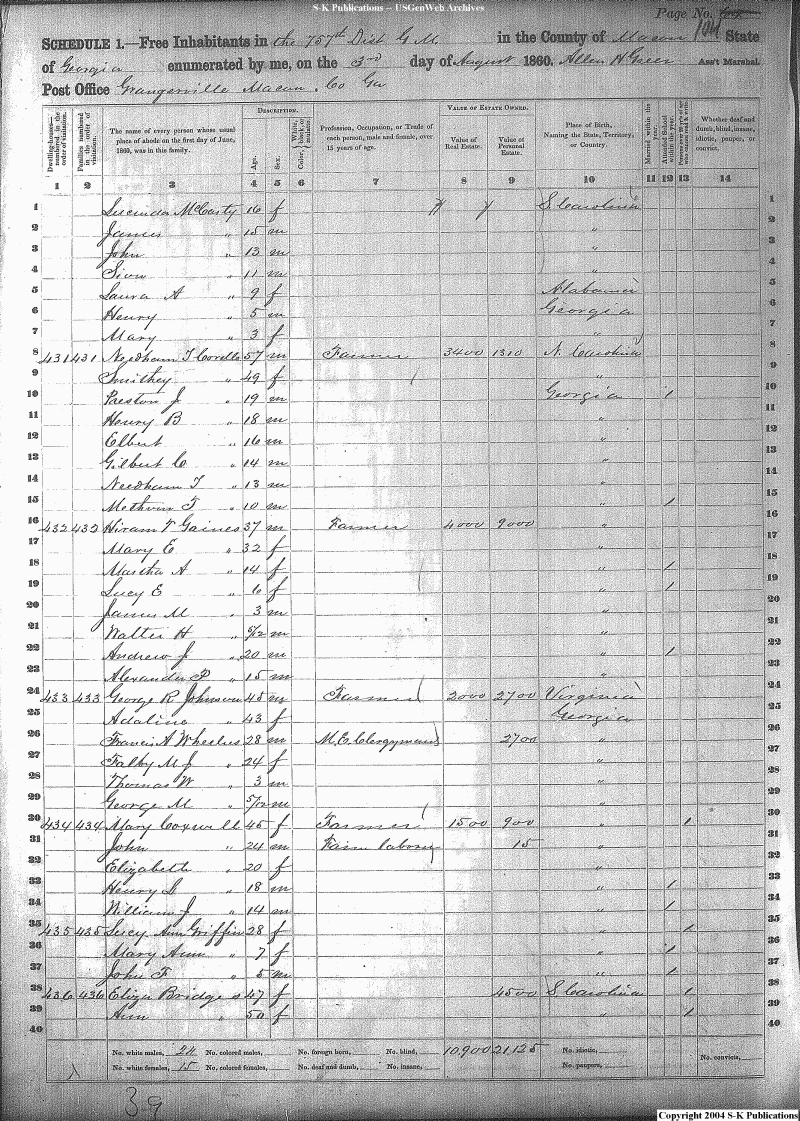 S-K Publications -- USGenWeb Archives
Page No. 104
SCHEDULE 1.—Free Inhabitants in the 757th Dist G M in the County of Macon State
of Georgia enumerated by me, on the 3rd day of August 1860. Allen H Greer Ass't Marshal.
Post Office Grangerville Macon Co Ga
Dwelling-houses—numbered in the order of visitation. Families numbered in the order of visitation. The name of every person whose usual place of abode on the first day of June, 1860, was in this family. DESCRIPTION. Age. Sex. Color, White, black, or mulatto. Profession, Occupation, or Trade of each person, male and female, over 15 years of age. VALUE OF ESTATE OWNED. Value of Real Estate. Value of Personal Estate. Place of Birth, Naming the State, Territory, or Country. Married within the year. Attended School within the year. Whether deaf and dumb, blind, insane, idiotic, pauper, or convict.
1 2 3 4 5 6 7 8 9 10 11 12 13 14
1 Lucinda McCarty 16 f S Carolina 1
2 James " 15 m " 2
3 John " 13 m " 3
4 Sion " 11 m " 4
5 Laura A " 9 f Alabama 5
6 Henry " 5 m Georgia 6
7 Mary " 3 f " 7
8 431 431 Needham T 57 m Farmer 3400 1310 N. Carolina 8
9 Smithey " 49 f " 9
10 Preston J " 19 m Georgia 1 10
11 Henry B " 18 m " 11
12 Elbert " 16 m " 12
13 Gilbert C " 14 m " 13
14 Needham T " 13 m " 14
15 Methven F " 10 m " 1 15
16 432 432 Hiram T Gaines 37 m Farmer 4000 9000 " 16
17 Mary E " 32 f " 17
18 Martha A " 14 f " 1 18
19 Lucy E " 6 f " 1 19
20 James M " 3 m " 20
21 Walter H " 5/12 m " 21
22 Andrew J " 20 m " 1 22
23 Alexander P " 15 m " 23
24 433 433 George R Johnson 45 m Farmer 2000 2700 Virginia 24
25 Adaline " 43 f Georgia 25
26 Francis A Wheelus 28 m M. E. Clergyman 2700 " 26
27 Falby M J " 24 f " 27
28 Thomas W " 3 m " 28
29 George M " 5/12 m " 29
30 434 434 Mary Coxwell 45 f Farmer 1500 900 " 1 30
31 John " 24 m Farm laborer 15 " 31
32 Elizabeth " 20 f " 32
33 Henry S " 18 m " 1 33
34 William J " 14 m " 1 34
35 435 435 Lucy Ann Griffin 28 f " 1 35
36 Mary Ann " 7 f " 1 36
37 John F " 5 m " 1 37
38 436 436 Eliza Bridges 47 f 4500 S Carolina 1 38
39 Ann " 50 f " 1 39
40 40
No. white males, 24 No. colored males, No. foreign born, No. blind, 10,900 21,125 No. idiotic,
No. white females, 15 No. colored females, No. deaf and dumb, No. insane, No. paupers, No. convicts,
39
Copyright 2004 S-K Publications